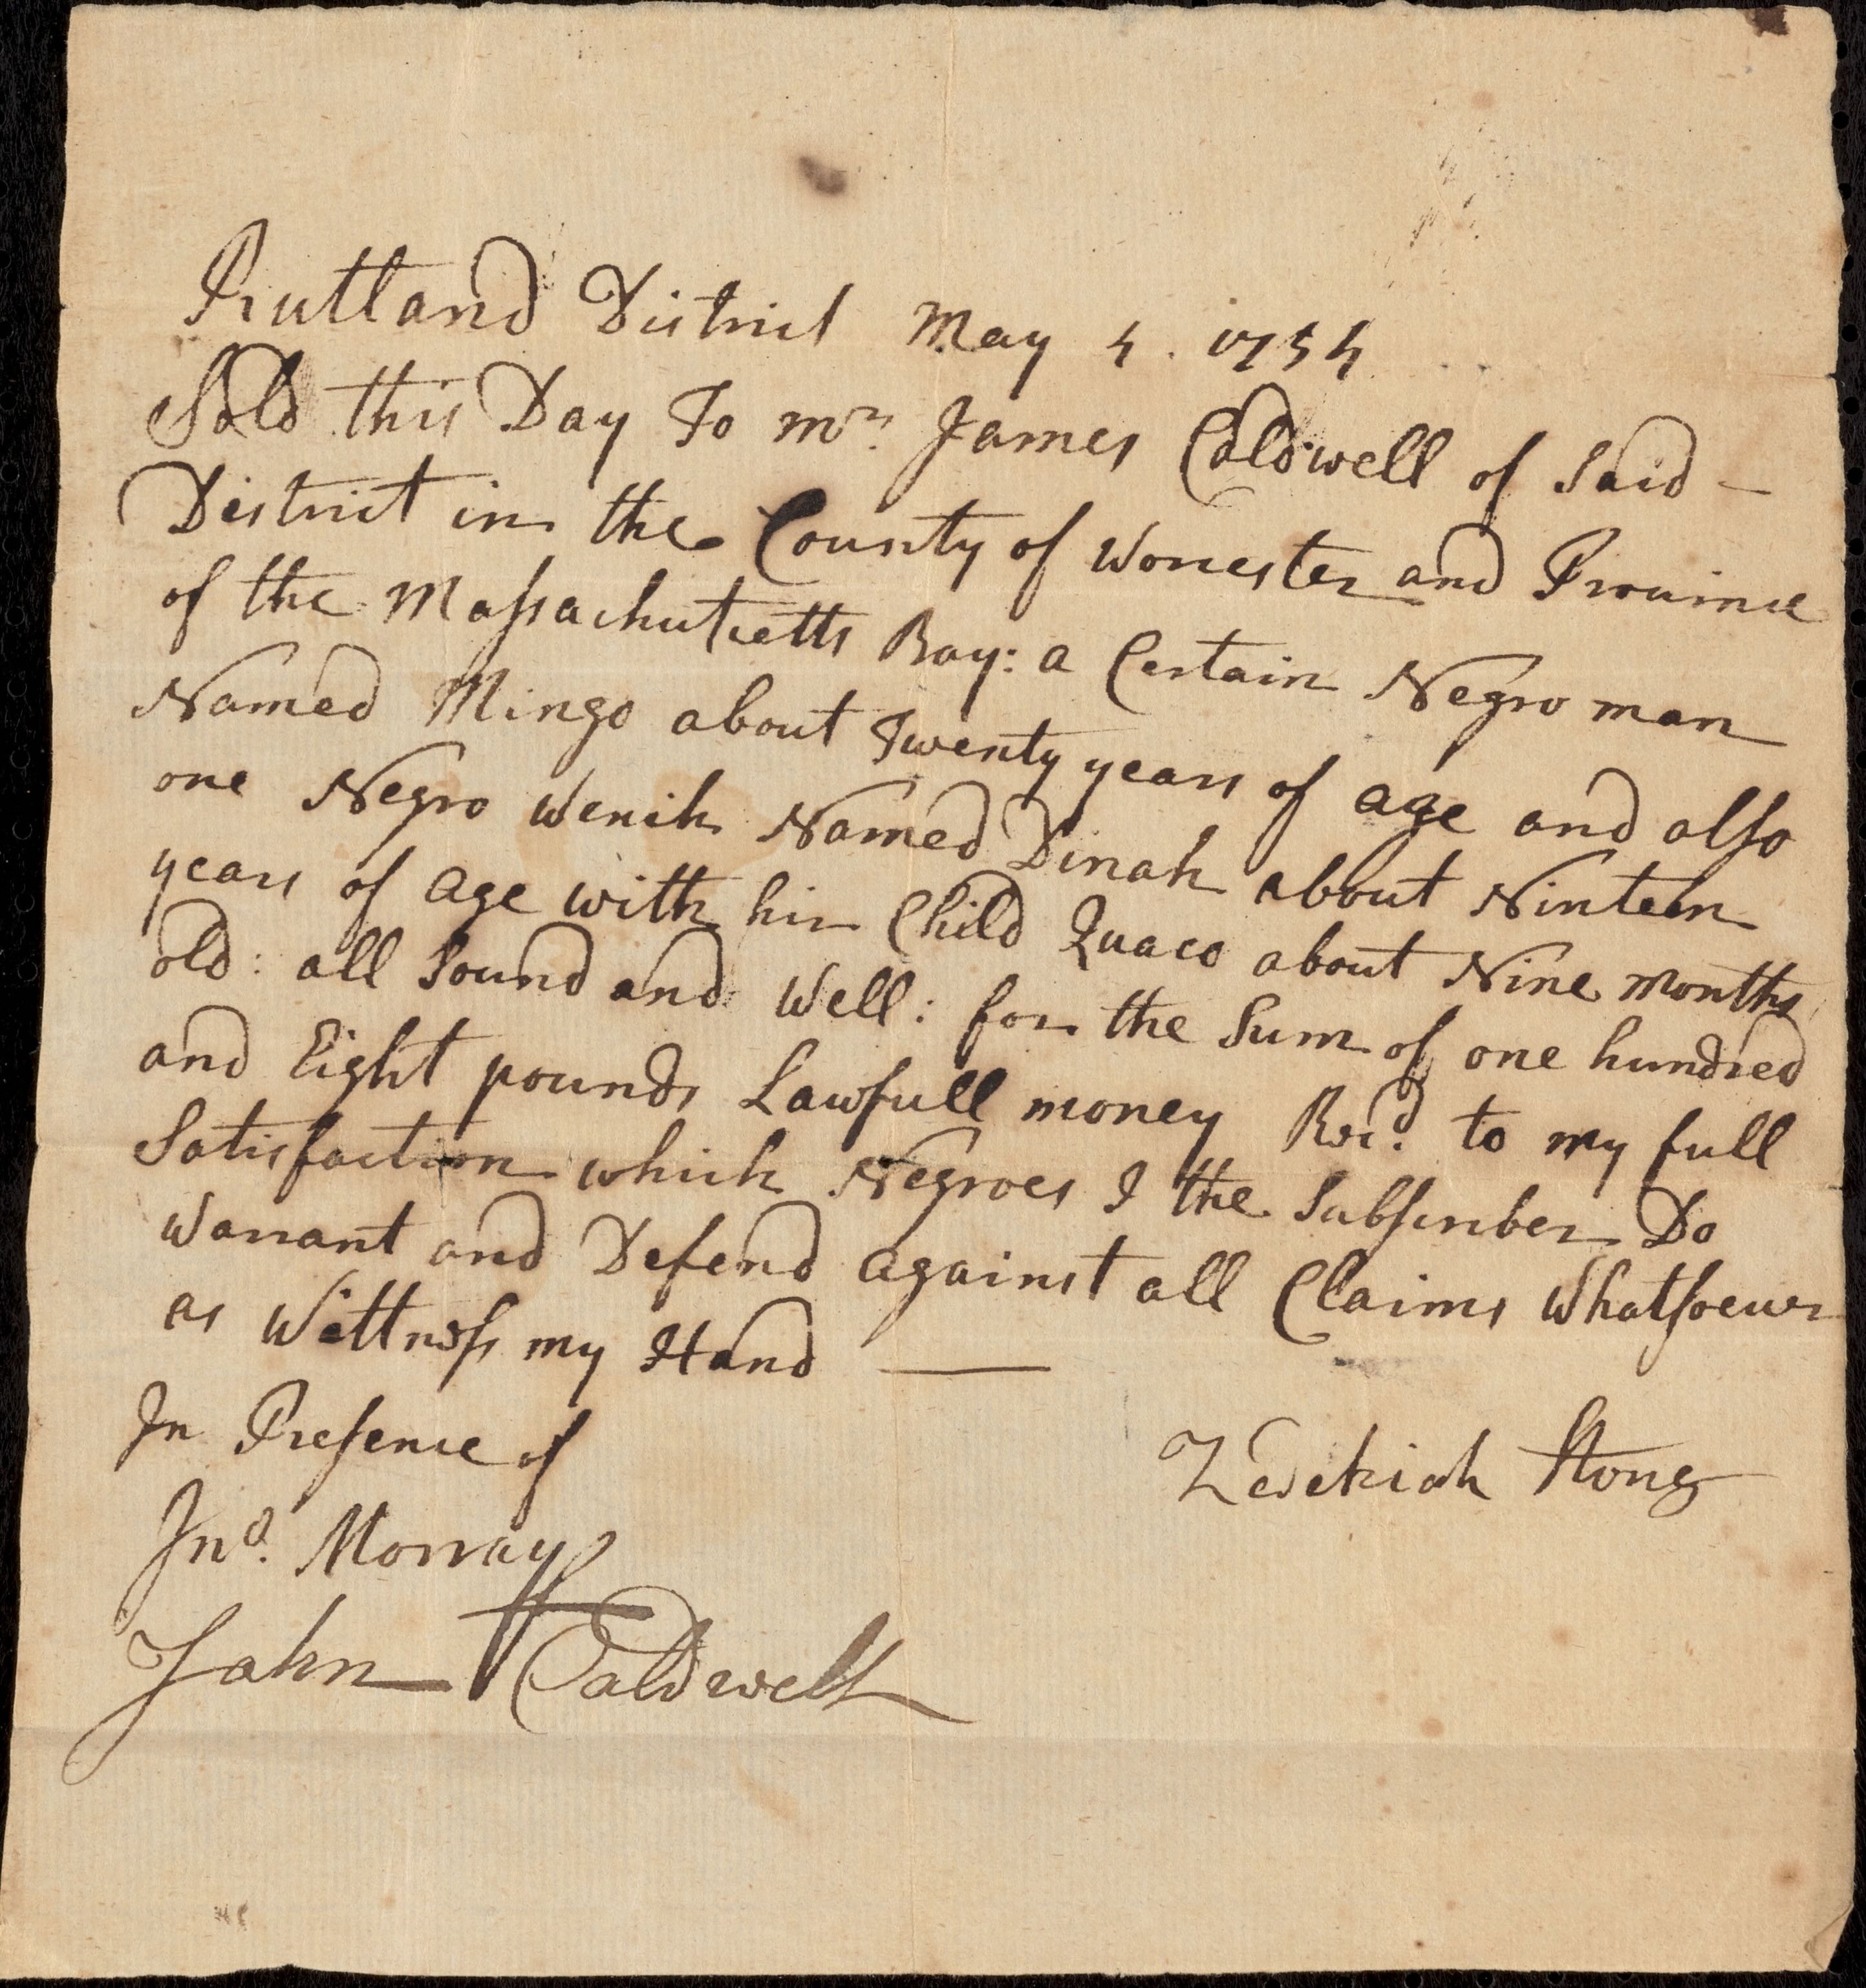 Rutland District May 4. 1754
Sold this Day To Mr. James Caldwell of Said –
District in the County of Worcester and Province
of the Massachusetts Bay: a Certain Negro man
Named Mingo about Twenty years of age and also
one Negro Wench Named Dinah about Ninteen
years of age with hir Child Quaco about Nine months
old: all Sound and Well: for the Sum of one hundred
and Eight pounds Lawfull money Recd. to my full
Satisfaction which Negroes I the Subscriber Do
Warrant and Defend against all Claims Whatsoever
as Wittness my Hand —
In Presence of
Zedekiah Stone
Jno. Morray
John Caldwell